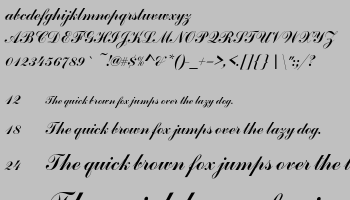 abcdefghijklmnopqrstuvwxyz
ABCDEFGHIJKLMNOPQRSTUVWXYZ
0123456789` ~!@#$%^&*()-_+=>,<.[]{}|\":;/?
12 The quick brown fox jumps over the lazy dog.
18 The quick brown fox jumps over the lazy dog.
24 The quick brown fox jumps over the l